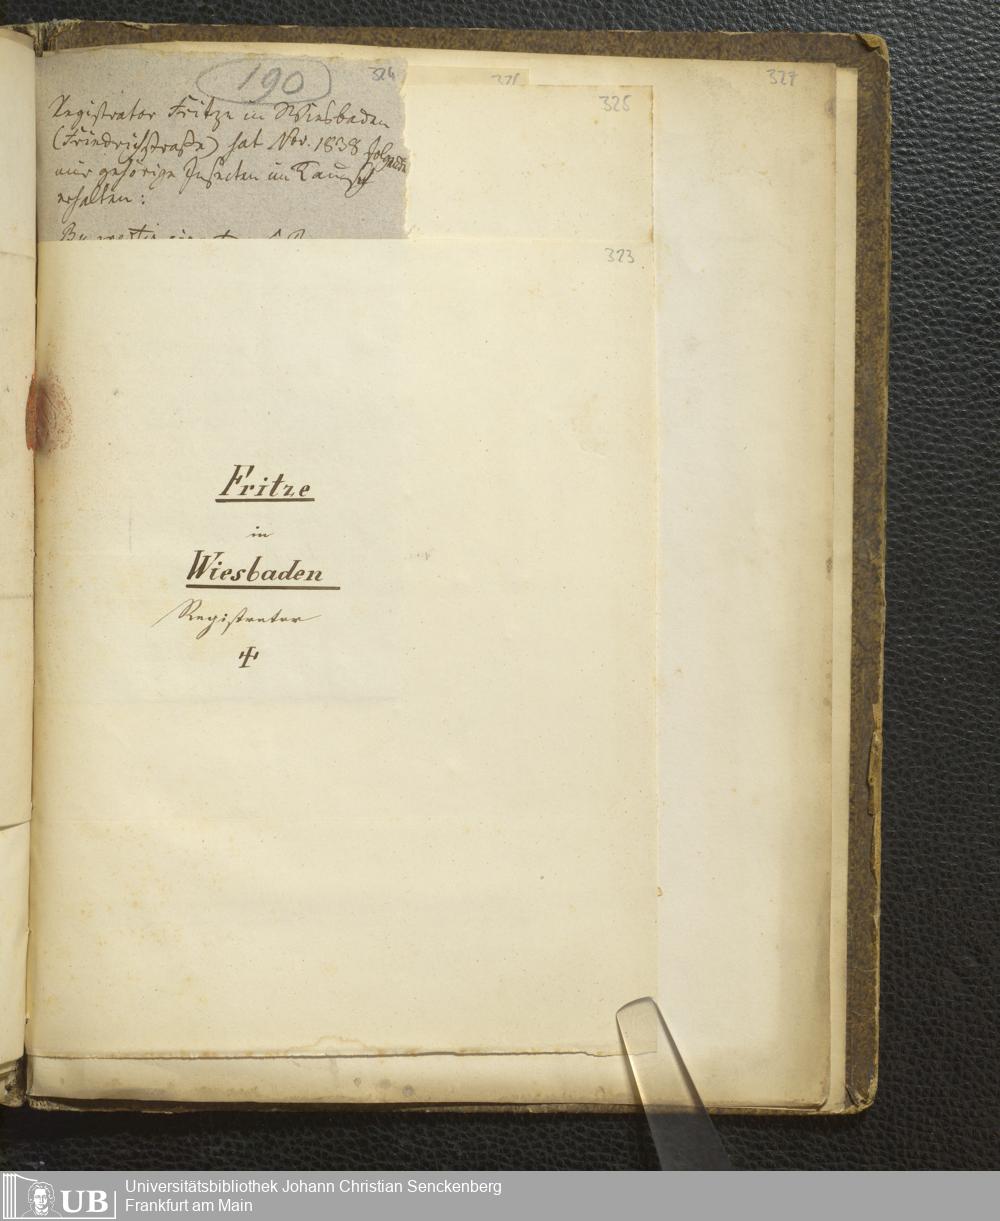 190
324
325
327
Registrator Fritze in Wiesbaden
(Friedrichstraße) hat Nov. 1838 folgende
mir gehörige Insecten im Tausch
erhalten:
323
Fritze
in
Wiesbaden
Registrator
UB
Universitätsbibliothek Johann Christian Senckenberg
Frankfurt am Main